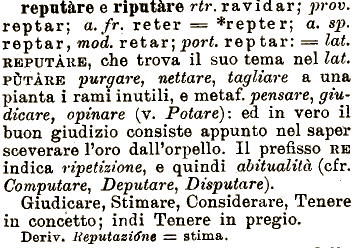 reputàre e riputàre rtr. ravidar; prov.
reptar; a. fr. reter = *repter; a. sp.
reptar, mod. retar; port. reptar: = lat.
REPUTÀRE, che trova il suo tema nel lat.
PÙTÀRE purgare, nettare, tagliare a una
pianta i rami inutili, e metaf. pensare, giu-
dicare, opinare (v. Potare): ed in vero il
buon giudizio consiste appunto nel saper
sceverare l'oro dall'orpello. Il prefisso RE
indica ripetizione, e quindi abitualità (cfr.
Computare, Deputare, Disputare).
Giudicare, Stimare, Considerare, Tenere
in concètto; indi Tenere in pregio.
Deriv. Reputazióne = stima.